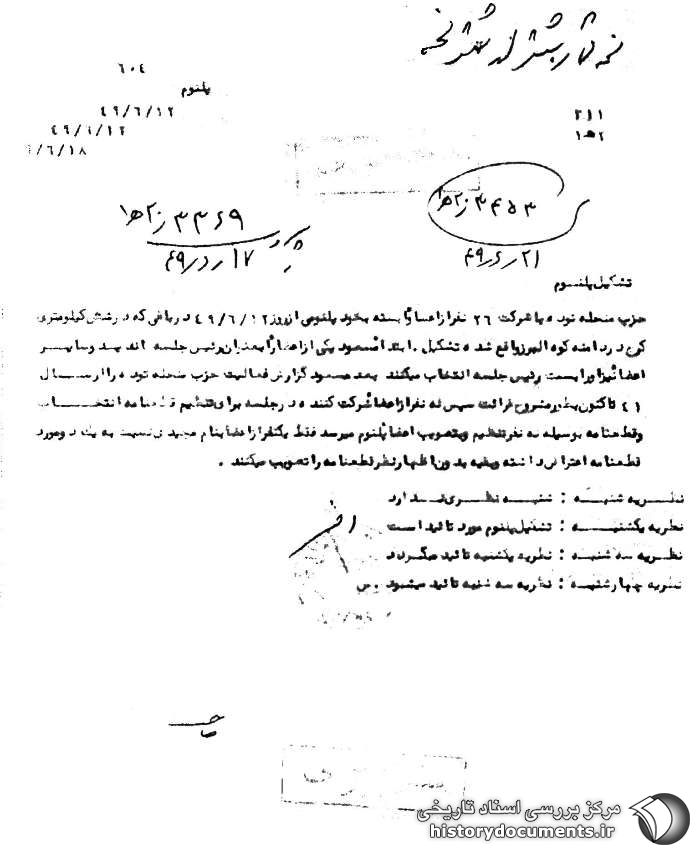 ۶۰۴
پلنوم
۳۱۱
۴۹/۶/۱۲
۱ ه‍ ۲
۴۹/۶/۱۲
/۶/۱۸
۳۴۵۳
۳۳۶۹
۴۹ر۶ر۲۱
تشکیل پلنوم
حزب منحله توده با شرکت ۲۶ نفر از اعضا وابسته بخود پلنومی از روز ۴۹/۶/۱۲ در باغی که در شش کیلومتری
کرج در دامنه کوه البرز واقع شده تشکیل . ابتدا مسعود یکی از اعضا را بعنوان رئیس جلسه و سایر
اعضا نیز او را بسمت رئیس جلسه انتخاب میکنند بعد مسعود گزارش فعالیت حزب منحله توده را از سال
۴۱ تاکنون بطور مشروح قرائت سپس نه نفر از اعضا شرکت کننده در جلسه برای تنظیم قطعنامه انتخاب
و قطعنامه بوسیله نه نفر تنظیم و بتصویب اعضا پلنوم میرسد فقط یکنفر از اعضا بنام مجیدی نسبت به یک دو مورد
قطعنامه اعتراض داشته و بقیه بدون اظهار نظر قطعنامه را تصویب میکنند .
نظریه شنبه : شنبه نظری ندارد
نظریه یکشنبه : تشکیل پلنوم مورد تائید است
نظریه سه شنبه : نظریه یکشنبه تائید میگردد
نظریه چهارشنبه : نظریه سه شنبه تائید میشود . س
مرکز بررسی اسناد تاریخی
historydocuments.ir